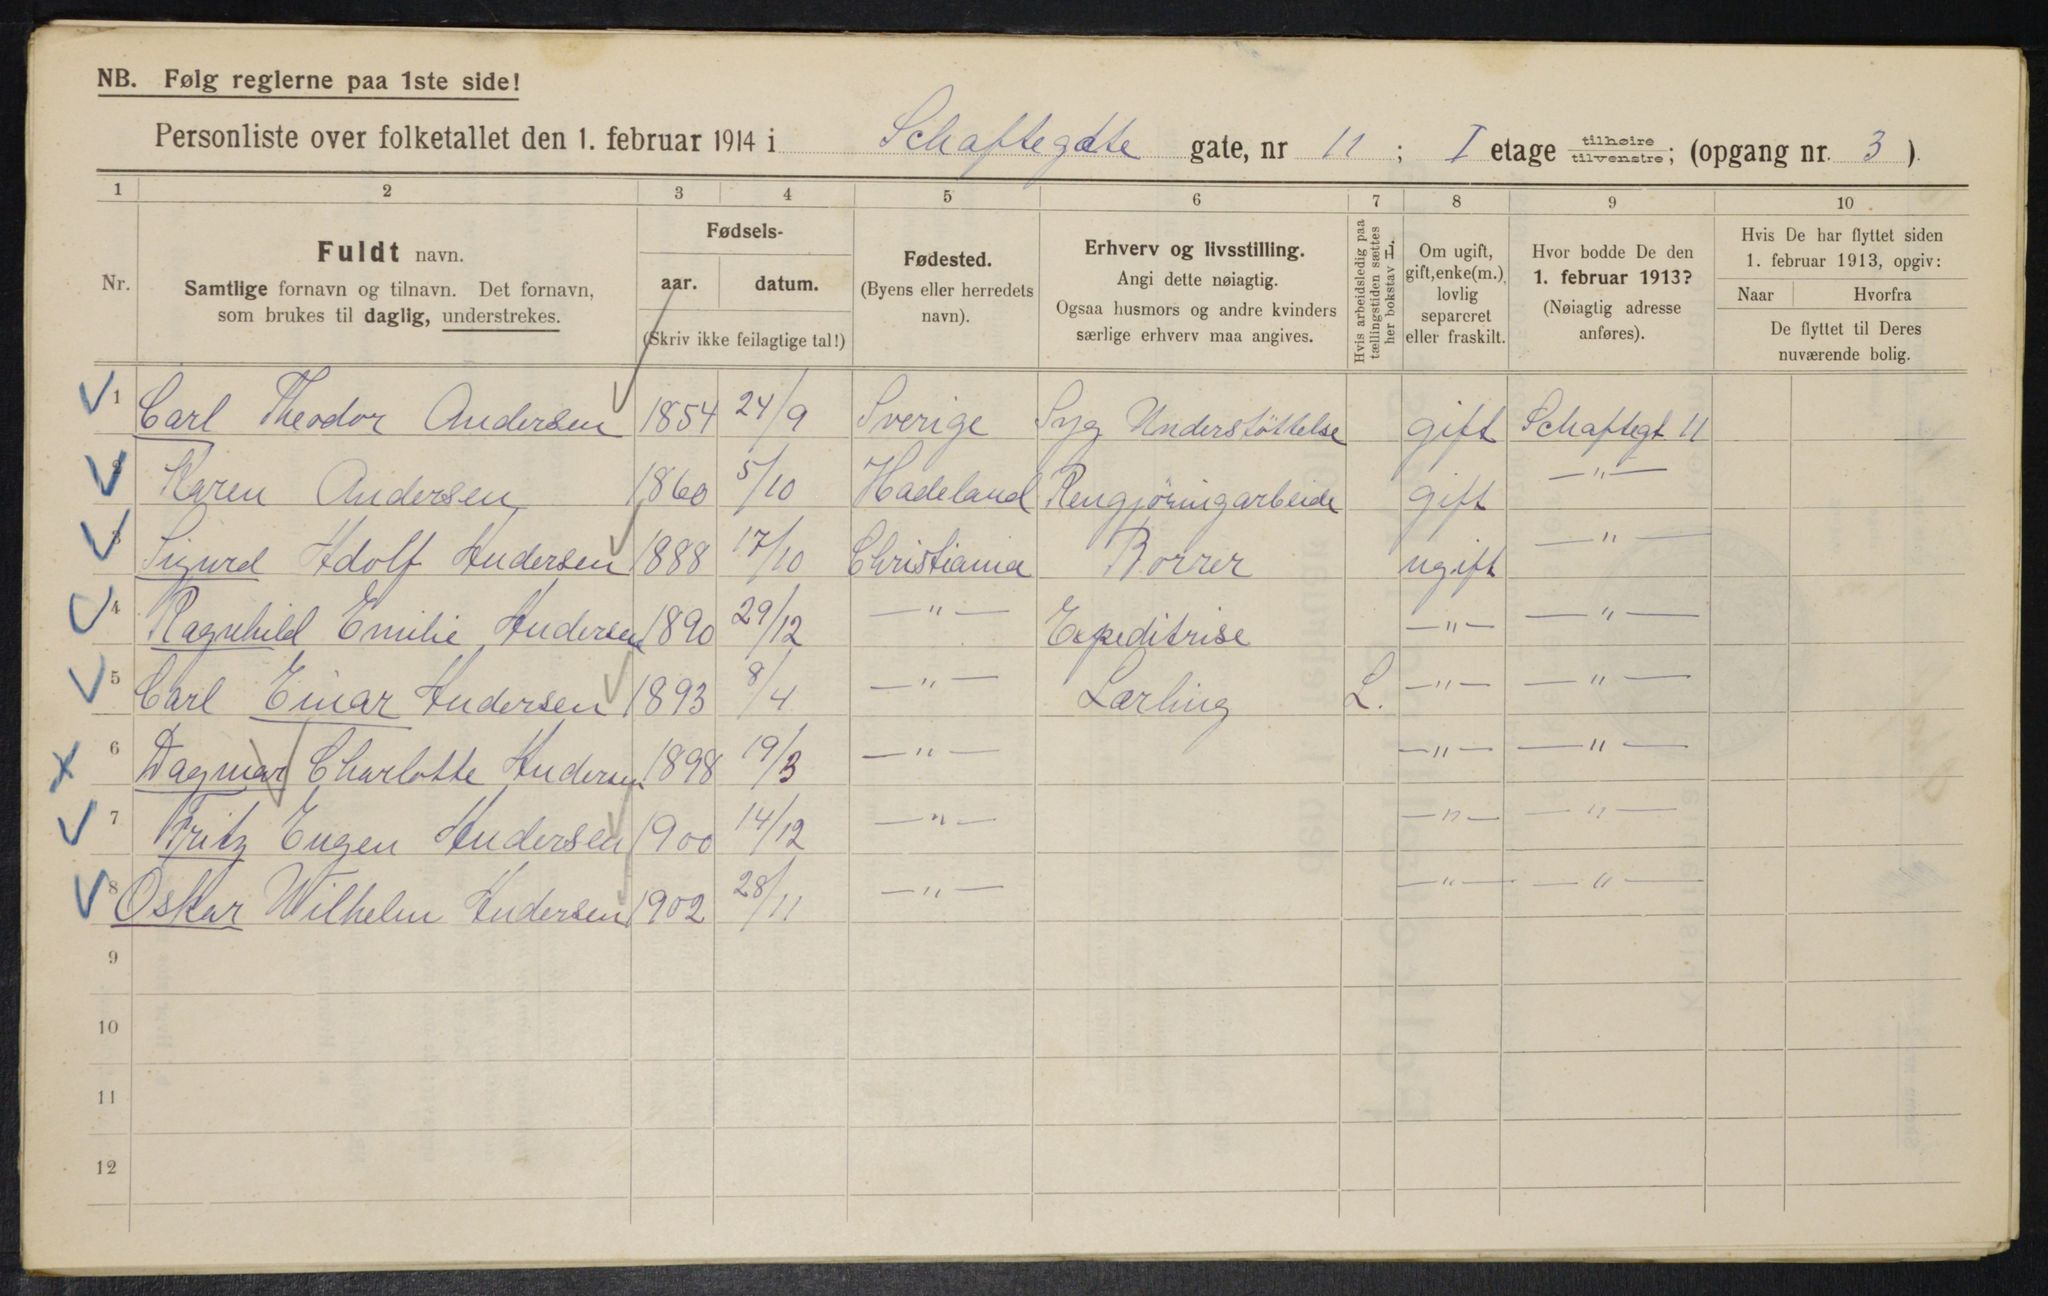 NB. Følg reglerne paa 1ste side!
Personliste over folketallet den 1. februar 1914 i Schaftegate gate, nr 11 ; I etage tilhøire tilvenstre; (opgang nr. 3 ).
1 2 3 4 5 6 7 8 9 10
Nr.
Fuldt navn.
Samtlige fornavn og tilnavn. Det fornavn,
som brukes til daglig, understrekes.
Fødsels-
aar. datum.
(Skriv ikke feilagtige tal!)
Fødested.
(Byens eller herredets
navn).
Erhverv og livsstilling.
Angi dette nøiagtig.
Ogsaa husmors og andre kvinders
særlige erhverv maa angives.
Hvis arbeidsledig paa
tællingstiden sættes
her bokstav L.
Om ugift,
gift, enke(m.),
lovlig
separeret
eller fraskilt.
Hvor bodde De den
1. februar 1913?
(Nøiagtig adresse
anføres).
Hvis De har flyttet siden
1. februar 1913, opgiv:
Naar Hvorfra
De flyttet til Deres
nuværende bolig.
1 Carl Theodor Andersen 1854 24/9 Sverige Syg Understöttelse gift Schaftegt 11
2 Karen Andersen 1860 5/10 Hadeland Rengjøringarbeide gift —"—
3 Sigurd Adolf Andersen 1888 17/10 Christiania Borrer ugift —"—
4 Ragnhild Emilie Andersen 1890 29/12 —"— Expeditrise —"— —"—
5 Carl Einar Andersen 1893 8/4 —"— Lærling L. —"— —"—
6 Dagmar Charlotte Andersen 1898 19/3 —"— —"— —"—
7 Fritz Eugen Andersen 1900 14/12 —"— —"— —"—
8 Oskar Wilhelm Andersen 1902 28/11 —"— —"— —"—
9
10
11
12